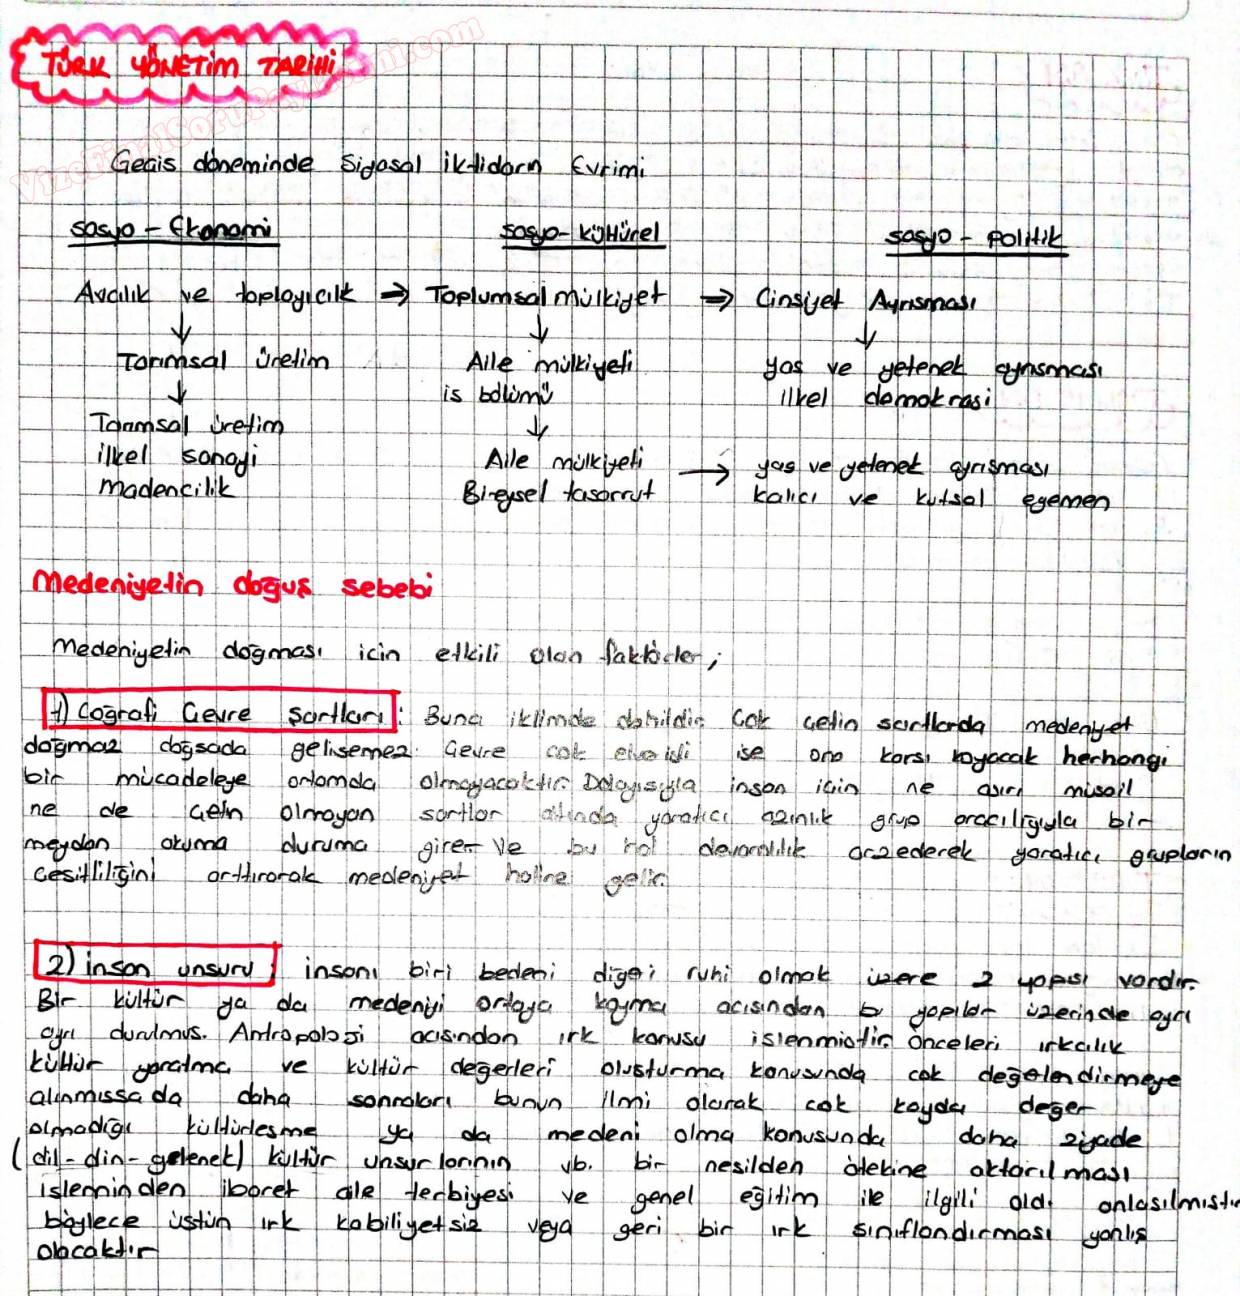 TÜRK YÖNETİM TARİHİ
VizeFinalSoruPaylasimi.com
Geçis döneminde Siyasal iktidarın Evrimi
sosyo - Ekonomi sosyo-kültürel sosyo - politik
Avcılık ve toplayıcılık ⇒ Toplumsal mülkiyet ⇒ Cinsiyet Ayrısması
↓ ↓ ↓
Tarımsal üretim Aile mülkiyeti yas ve yetenek ayrısması
↓ is bölümü ilkel demokrasi
Tarımsal üretim ↓
ilkel sanayi Aile mülkiyeti → yas ve yetenek ayrısması
Madencilik Bireysel tasarrut kalıcı ve kutsal egemen
Medeniyetin doğuş sebebi
Medeniyetin doğması icin etkili olan faktörler;
1) Coğrafi Cevre Sartları: Buna iklimde dahildir. Cok cetin sartlarda medeniyet
doğmaz doğsada gelisemez. Cevre cok elverisli ise ona karsı koyacak herhangi
bir mücadeleye ortamda olmayacaktır. Dolayısıyla insan icin ne asırı müsait
ne de cetin olmayan sartlar altında yaratıcı azınlık grup aracılığıyla bir
meydan okuma duruma girer. Ve bu hal devamlılık arzederek yaratıcı grupların
cesitliliğini arttırarak medeniyet haline gelir.
2) insan unsuru; insanı biri bedeni diğeri ruhi olmak üzere 2 yapısı vardır.
Bir kültür ya da medeniyi ortaya koyma acısından bu yapılar üzerinde ayrı
ayrı durulmus. Antropoloji acısından ırk konusu islenmistir. önceleri ırkcılık
kültür yaratma ve kültür değerleri olusturma konusunda cok değelendirmeye
alınmıssada daha sonraları bunun ilmi olarak cok kayda değer
olmadığı kültürlesme ya da medeni olma konusunda daha ziyade
(dil-din-gelenek) kültür unsurlarının vb. bir nesilden ötekine aktarılması
isleminden ibaret aile terbiyesi ve genel eğitim ile ilgili oldı anlasılmıstır
böylece üstün ırk kabiliyetsiz veya geri bir ırk sınıflandırması yanlış
olacaktır